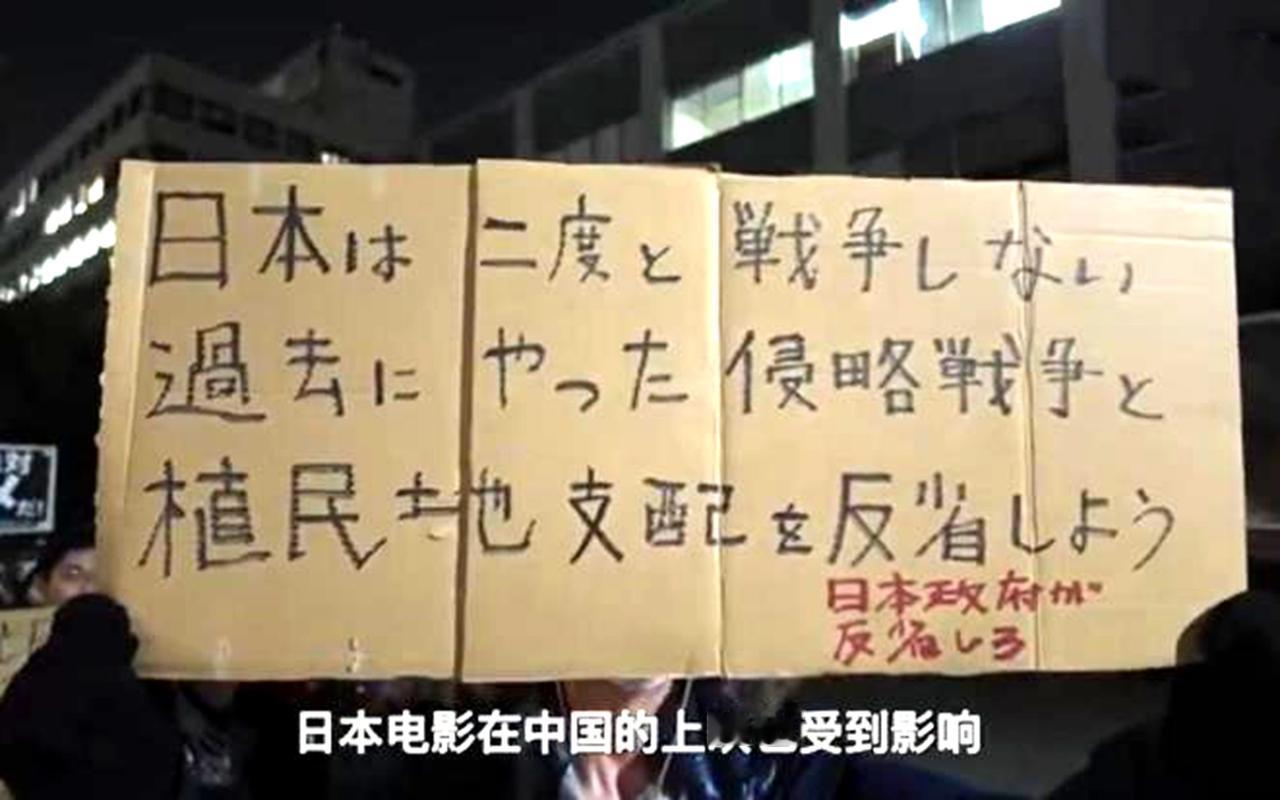 日本は二度と戦争しない
過去にやった侵略戦争と
植民地支配を反省しよう
日本政府が
反省しろ
日本电影在中国的上 受到影响